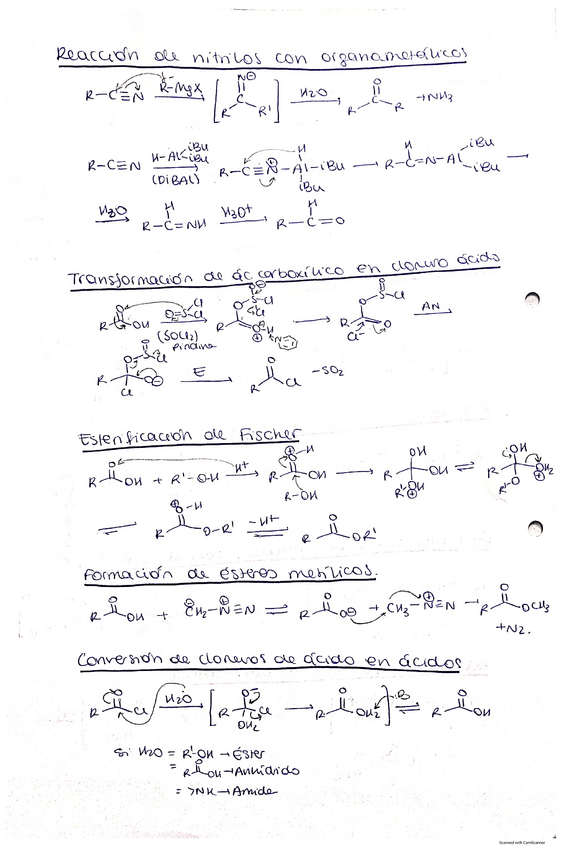 Reacción de nitrilos con organometálicos
R-C≡N R⁻-MgX [N⊖ C R R'] H2O O C R R +NH3
R-C≡N H-Al iBu iBu (DIBAL) R-C≡N⊕-Al-iBu H iBu R-C=N-Al H iBu iBu
H2O R-C=NH H H3O+ R-C=O H
Transformación de ác carboxílico en cloruro ácido
R O OH O=S Cl Cl (SOCl2) Piridina R O S Cl Cl O⊖ O⊕ H N R O S O Cl O Cl⁻ AN
R O S O Cl O⊖ Cl E R O Cl -SO2
Esterificación de Fischer
R O OH + R'-OH H+ R O⊕-H OH R-OH R OH OH R'-O⊕H R OH OH2⊕ R'-O
R O⊕-H O-R' -H+ R O OR'
Formación de ésteres metílicos.
R O OH + ⊖CH2-N⊕≡N R O O⊖ + CH3-N⊕≡N R O OCH3
+N2.
Conversión de cloruros de ácido en ácidos
R O Cl H2O [R O Cl OH2 R O OH2] :B R O OH
Si H2O = R'-OH → Éster
= R O OH → Anhídrido
= >NH → Amida
Scanned with CamScanner